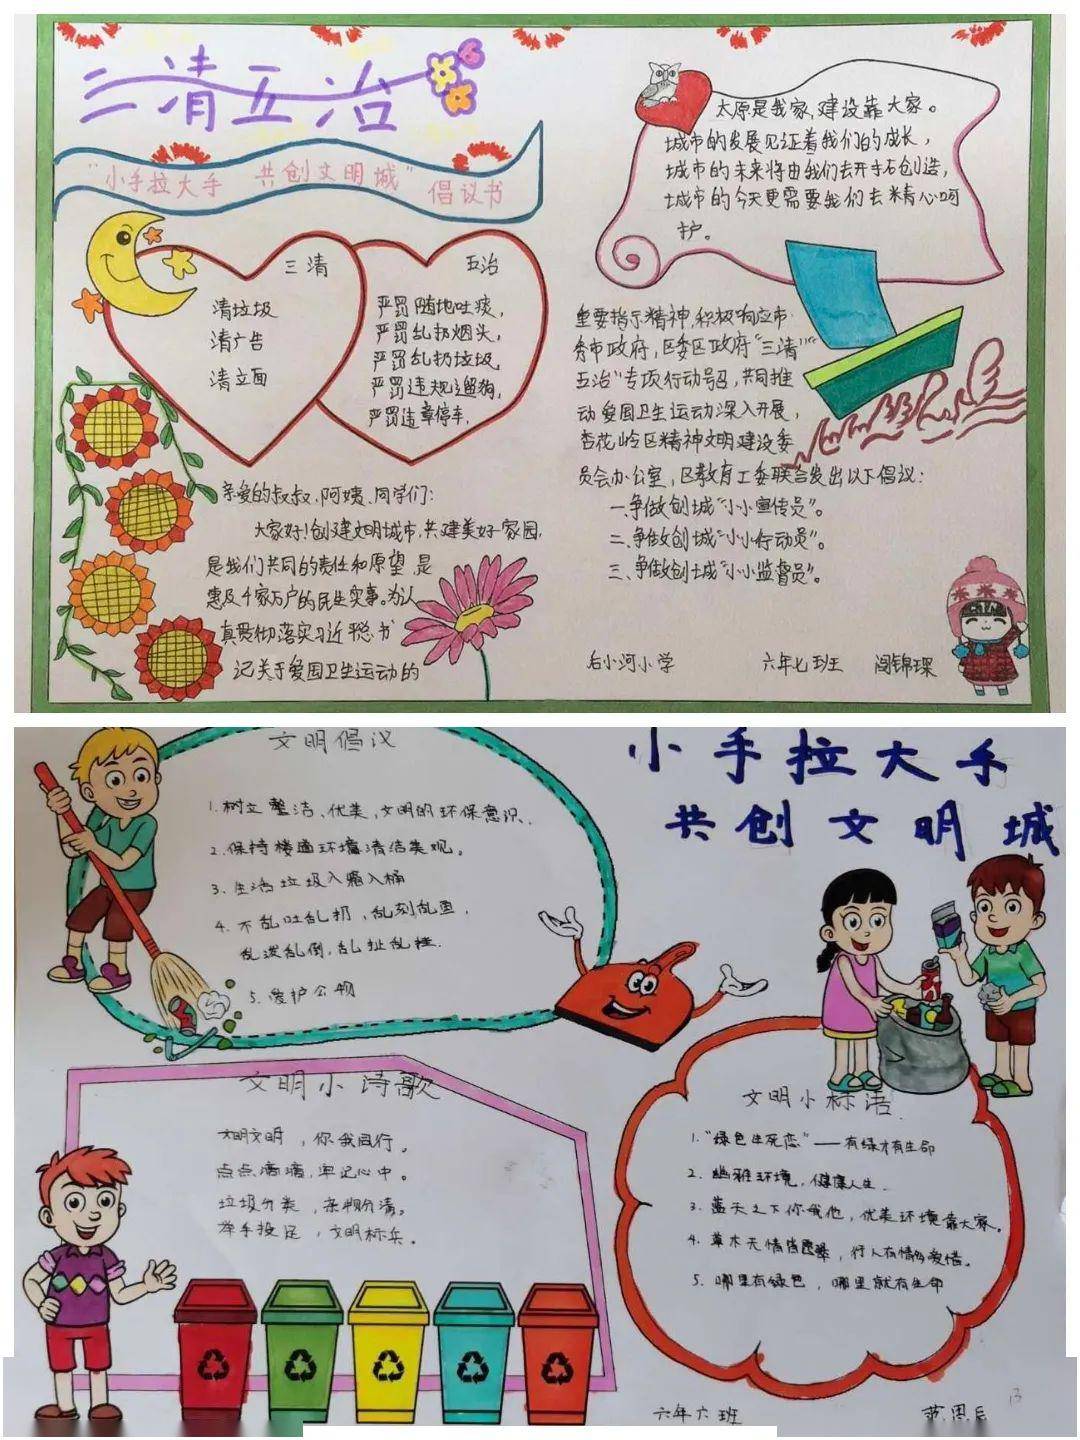 三清五治
"小手拉大手 共创文明城"倡议书
三清
清垃圾
清广告
清立面
五治
严罚随地吐痰,
严罚乱扔烟头,
严罚乱扔垃圾,
严罚违规遛狗,
严罚违章停车,
亲爱的叔叔、阿姨、同学们:
大家好!创建文明城市,共建美好家园,
是我们共同的责任和愿望,是
惠及千家万户的民生实事。为认
真贯彻落实习近平总书
记关于爱国卫生运动的
太原是我家,建设靠大家。
城市的发展见证着我们的成长,
城市的未来将由我们去开拓创造,
城市的今天更需要我们去精心呵
护。
重要指示精神,积极响应市
委市政府,区委区政府"三清"
五治"专项行动号召,共同推
动爱国卫生运动深入开展,
杏花岭区精神文明建设委
员会办公室,区教育工委联合发出以下倡议:
一、争做创城"小小宣传员"。
二、争做创城"小小行动员"。
三、争做创城"小小监督员"。
后小河小学 六年七班 阎锦琛
文明倡议
1.树立整洁、优美,文明的环保意识.
2.保持楼道环境清洁美观。
3.生活垃圾入箱入桶
4.不乱吐乱扔,乱刻乱画,
乱泼乱倒,乱扯乱挂.
5.爱护公物
小手拉大手
共创文明城
文明小诗歌
文明文明,你我同行。
点点滴滴,牢记心中。
垃圾分类,杂物分清。
举手投足,文明标兵。
文明小标语
1."绿色生死恋"——有绿才有生命
2.幽雅环境,健康人生.
3.蓝天之下你我他,优美环境靠大家。
4.草木无情皆翠,行人有情多爱惜。
5.哪里有绿色,哪里就有生命
六年六班 范恩
13